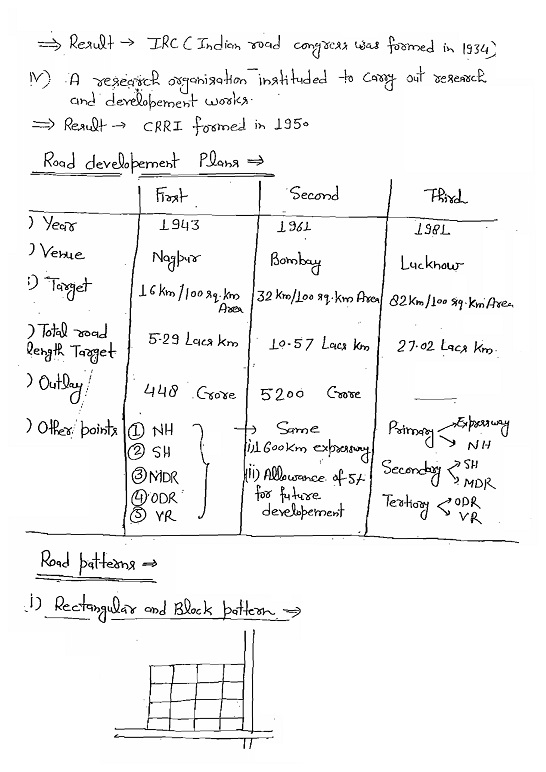 ⇒ Result → IRC (Indian road congress was formed in 1934)
IV) A research organisation instituded to carry out research
and developement works.
⇒ Result → CRRI formed in 1950
Road developement Plans ⇒
First Second Third
) Year 1943 1961 1981
) Venue Nagpur Bombay Lucknow
i) Target 16 Km/100 sq.km Area 32 km/100 sq.km Area 82 km/100 sq.km Area
) Total road length Target 5.29 Lacs Km 10.57 Lacs Km 27.02 Lacs Km.
) Outlay 448 Crore 5200 Crore ——
) Other points ① NH → Same Primary Expressway
② SH i) 1600 km expressway NH
③ MDR (ii) Allowance of 5% Secondary SH
④ ODR for future MDR
⑤ VR developement Tertiary ODR
VR
Road patterns ⇒
i) Rectangular and Block pattern ⇒